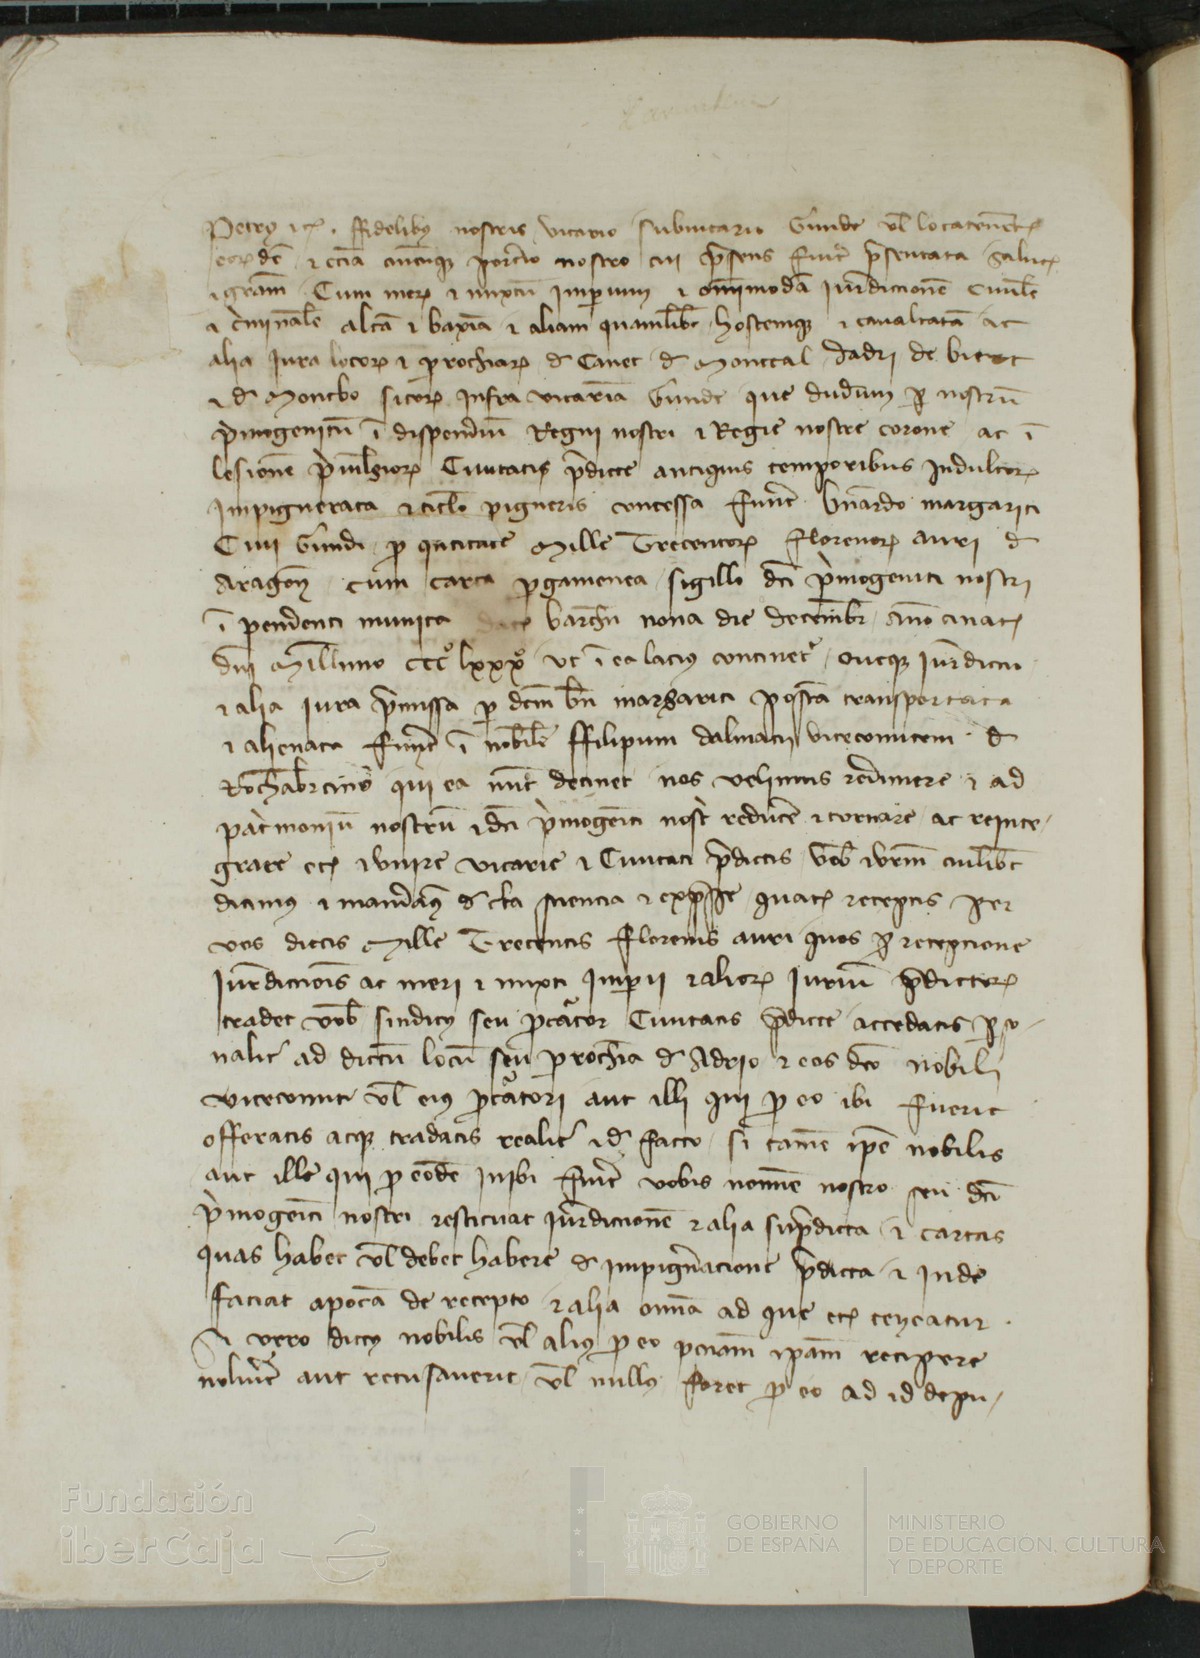 Petrus etc. ffidelibus nostris vicario subvicario Gerunde vel locatenentes
eorundem et etiam cuicumque porterio nostro cui presens fuerit presentata Salutem
et gratiam Cum merum et mixtum Imperium et omnimodam Iurediccionem Civilem
et criminalem altam et baxiam et aliam quamlibet hostemque et cavalcatam ac
alia Iura locorum et parrochiarum de Canet de Montcal dadri de biert
et de Montbo sitorum Infra vicariam Gerunde que dudum per nostrum
primogenitum in dispendium Regni nostri et Regie nostre corone ac in
lesionem privilegiorum Civitatis predicte antiquis temporibus Indultorum
Impignerata et titulo pigneris concessa fuerint bernardo margariti
Civi Gerunde pro quantitate Mille Trecentorum florenorum auri de
Aragonum cum carta pergamenea sigillo dicti primogeniti nostri
in pendenti munita data barchinone nona die decembris anno a nat.
domini Millesimo CCCº lxxxº ut in ea lacius continetur, queque Iurediccio
et alia iura premissa per dictum bn margariti postea transportata
et alienata fuerint in nobilem ffilipum dalmacii vicecomitem de
Rochabertino qui ea nunc detinet nos velimus redimere et ad
patrimonium nostrum et dicti primogeniti nostri reducere et tornare ac reinte-
grare etc et unire vicarie et Civitati predictis vobis et vestrum cuilibet
dicimus et mandamus de certa sciencia et expresse quatenus receptis per
vos dictis Mille Trecentis florenis auri quos pro recepcione
Iurediccionis ac meri et mixti Imperii et aliorum iurium predictorum
tradet vobis sindicus seu procurator Civitatis predicte accedatis perso-
naliter ad dictum locum seu parrochiam de Adrio et eos dicto nobili
vicecomiti vel eius procuratori aut illi qui pro eo ibi fuerit
offeratis atque tradatis realiter et de facto si tamen ipse nobilis
aut ille qui pro eodem inibi fuerit vobis nomine nostro seu dicti
primogeniti nostri restituat Iurediccionem et alia supradicta et cartas
quas habet vel debet habere de impigneracione predicta et Inde
faciat apocam de recepto et alia omnia ad que etc teneatur.
Si vero dictus nobilis vel alius pro eo pecuniam ipsam recipere
noluerit aut recusaverit vel nullus foret pro eo ad id depu-
Fundación
iberCaja
GOBIERNO
DE ESPAÑA
MINISTERIO
DE EDUCACIÓN, CULTURA
Y DEPORTE